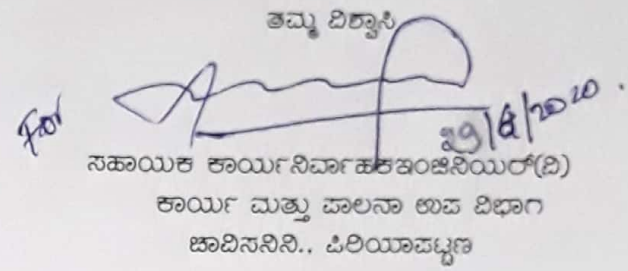 ತಮ್ಮ ವಿಶ್ವಾಸಿ
For
29/8/2020.
ಸಹಾಯಕ ಕಾರ್ಯನಿರ್ವಾಹಕಇಂಜಿನಿಯರ್(ವಿ)
ಕಾರ್ಯ ಮತ್ತು ಪಾಲನಾ ಉಪ ವಿಭಾಗ
ಚಾವಿಸನಿನಿ., ಪಿರಿಯಾಪಟ್ಟಣ